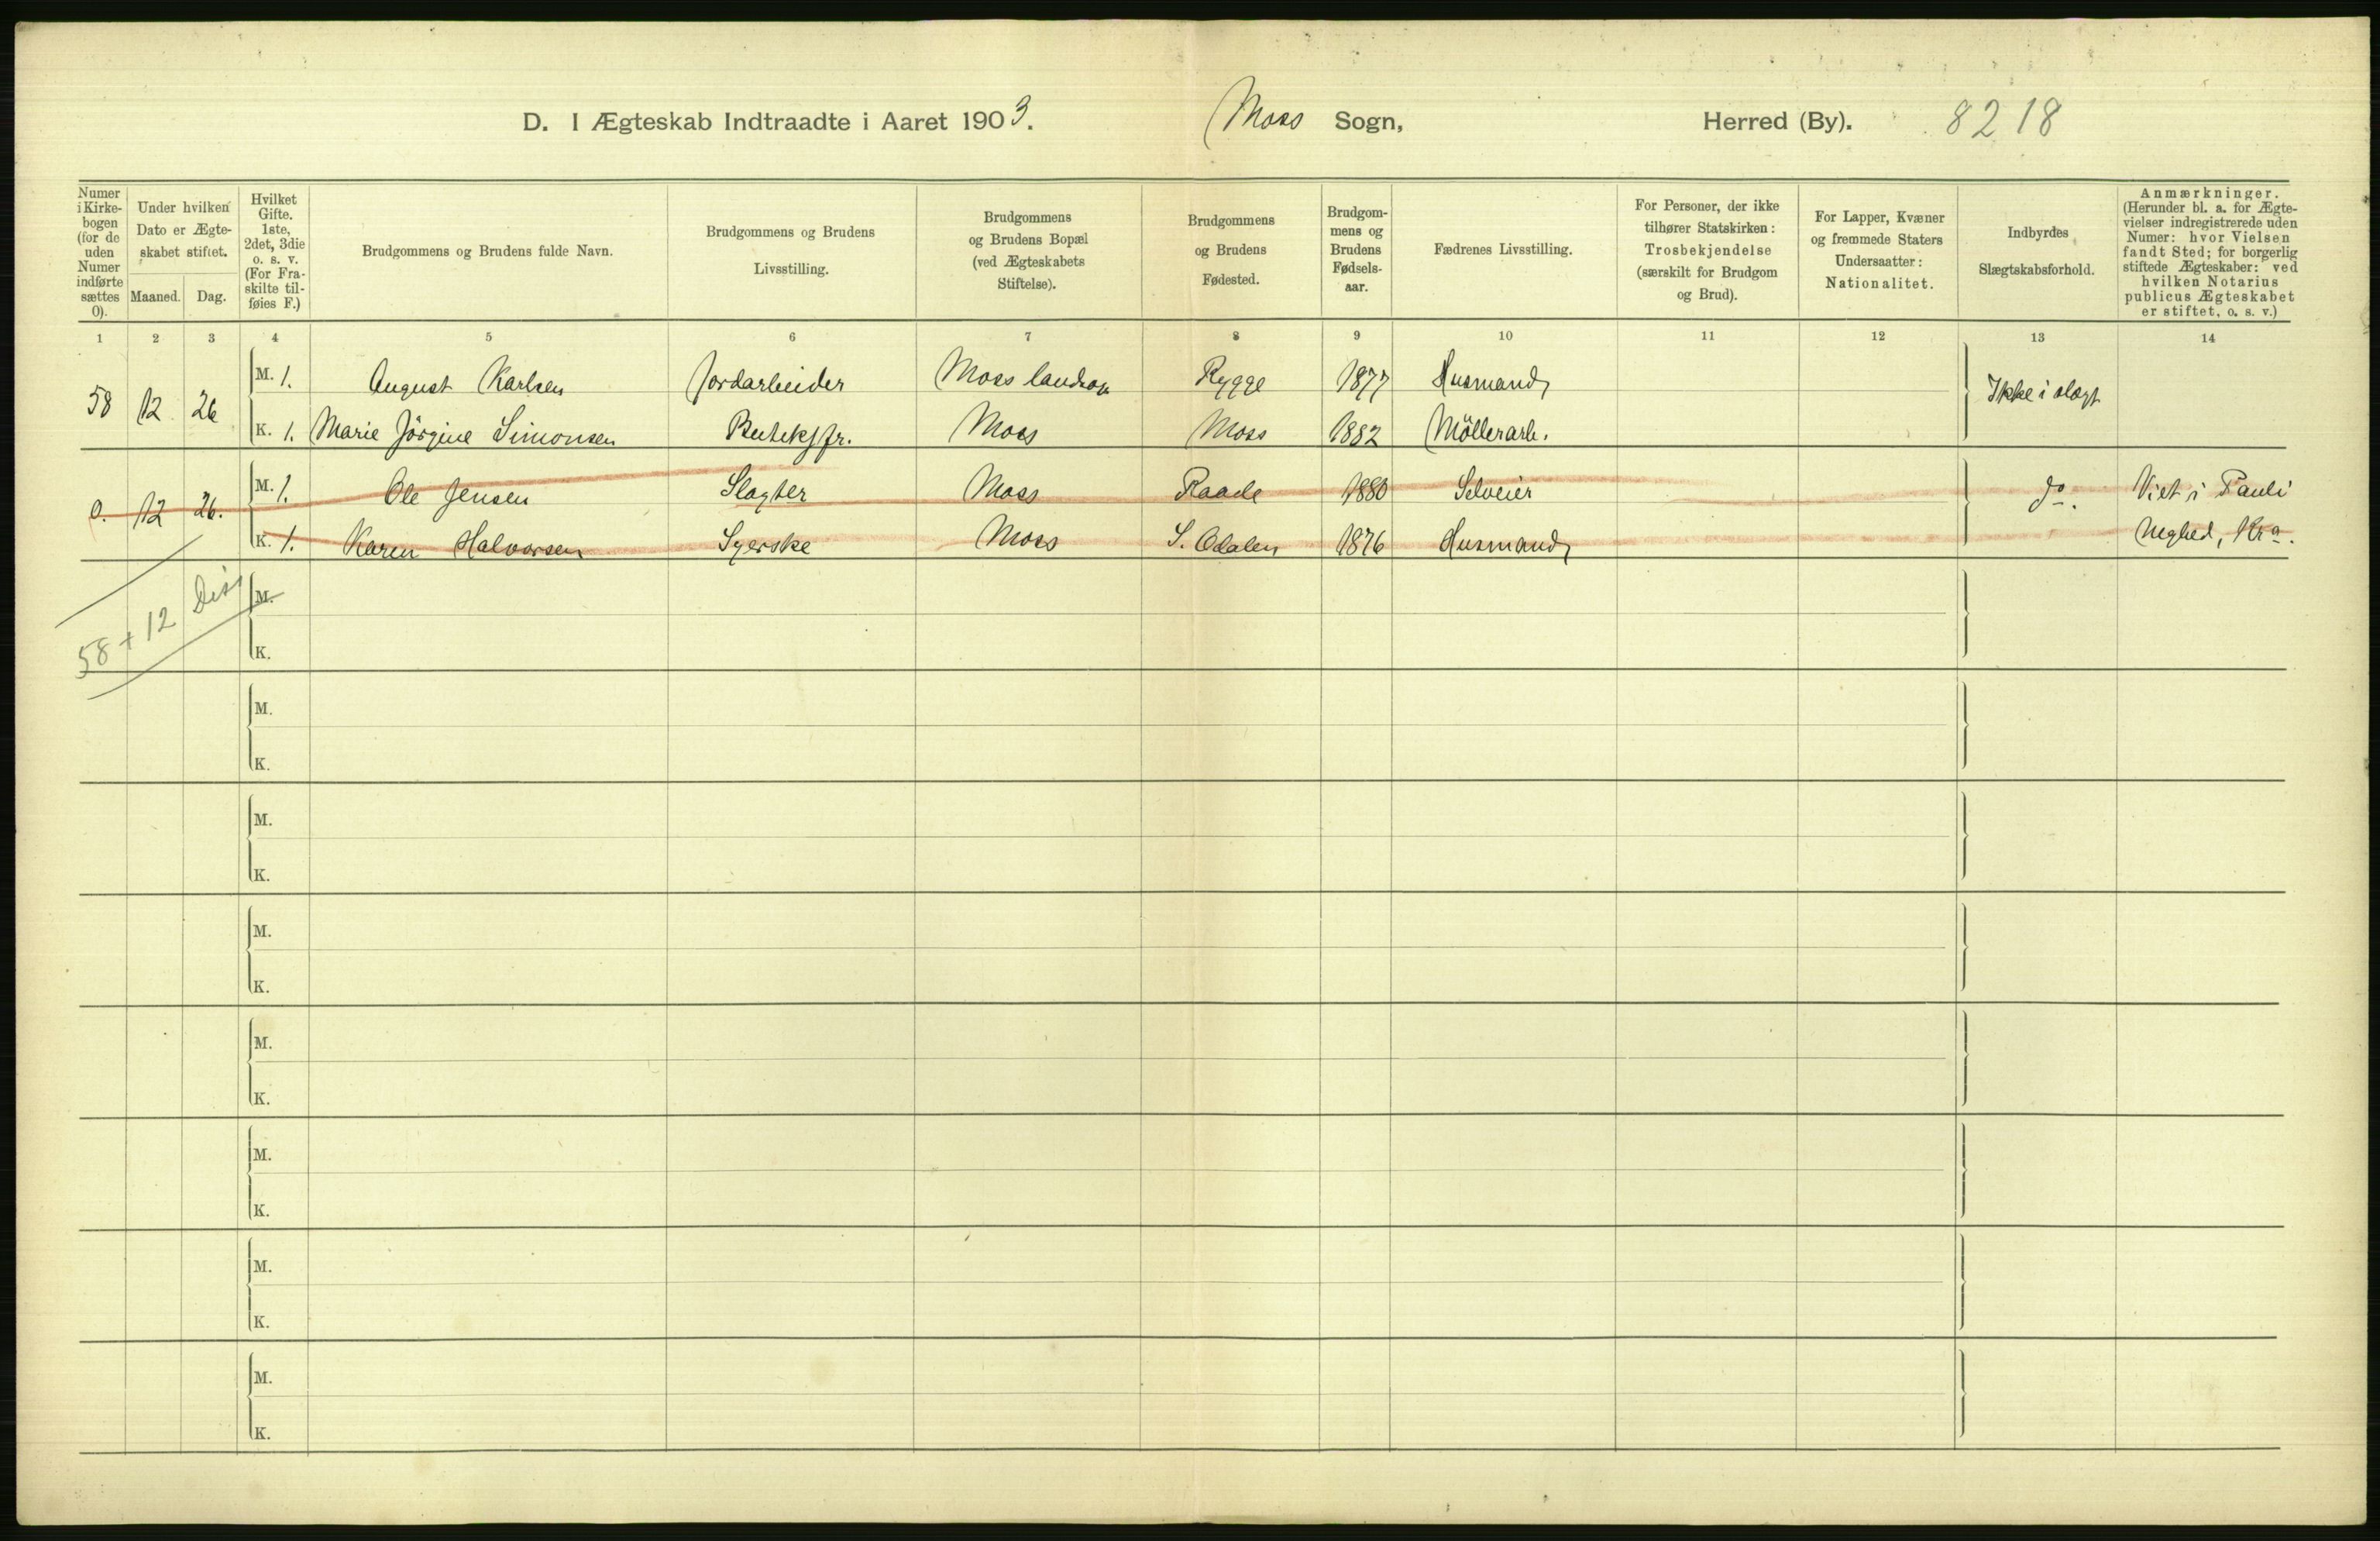 D. I Ægteskab Indtraadte i Aaret 1903. Moss Sogn, Herred (By). 8218
Numer i Kirkebogen (for de uden Numer indførte sættes 0).
Under hvilken Dato er Ægteskabet stiftet.
Maaned. Dag.
Hvilket Gifte. 1ste, 2det, 3die o. s. v. (For Fraskilte tilføies F.)
Brudgommens og Brudens fulde Navn.
Brudgommens og Brudens Livsstilling.
Brudgommens og Brudens Bopæl (ved Ægteskabets Stiftelse).
Brudgommens og Brudens Fødested.
Brudgommens og Brudens Fødselsaar.
Fædrenes Livsstilling.
For Personer, der ikke tilhører Statskirken: Trosbekjendelse (særskilt for Brudgom og Brud).
For Lapper, Kvæner og fremmede Staters Undersaatter: Nationalitet.
Indbyrdes Slægtskabsforhold.
Anmærkninger. (Herunder bl. a. for Ægtevielser indregistrerede uden Numer: hvor Vielsen fandt Sted; for borgerlig stiftede Ægteskaber: ved hvilken Notarius publicus Ægteskabet er stiftet, o. s. v.)
1 2 3 4 5 6 7 8 9 10 11 12 13 14
58 12 26 M. 1. August Karlsen Jordarbeider Moss landsogn Rygge 1877 Husmand Ikke i slægt
K. 1. Marie Jörgine Simonsen Butikjfr. Moss Moss 1882 Möllerarb.
0. 12 26. M. 1. Ole Jensen Slagter Moss Raade 1880 Selveier do. Viet i Pauli
K. 1. Karen Halvorsen Syerske Moss S. Odalen 1876 Husmand Meghed, Kra.
58 + 12
M.
K.
M.
K.
M.
K.
M.
K.
M.
K.
M.
K.
M.
K.
M.
K.